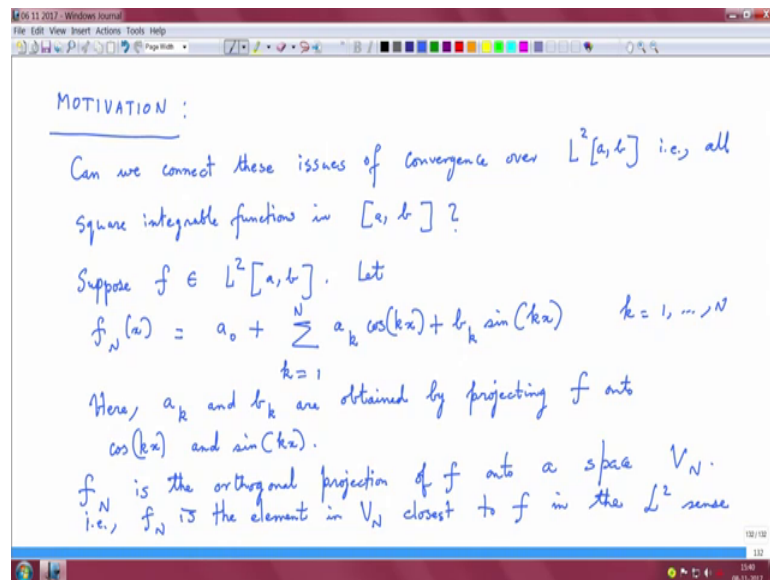 06 11 2017 - Windows Journal
File Edit View Insert Actions Tools Help
Page Width
MOTIVATION :
Can we connect these issues of convergence over L²[a, b] i.e., all
square integrable function in [a, b] ?
Suppose f ∈ L²[a, b]. Let
f_N(x) = a_0 + \sum_{k=1}^{N} a_k cos(kx) + b_k sin(kx) k = 1, ..., N
Here, a_k and b_k are obtained by projecting f onto
cos(kx) and sin(kx).
f_N is the orthogonal projection of f onto a space V_N.
i.e., f_N is the element in V_N closest to f in the L² sense
132/132
132
15:40